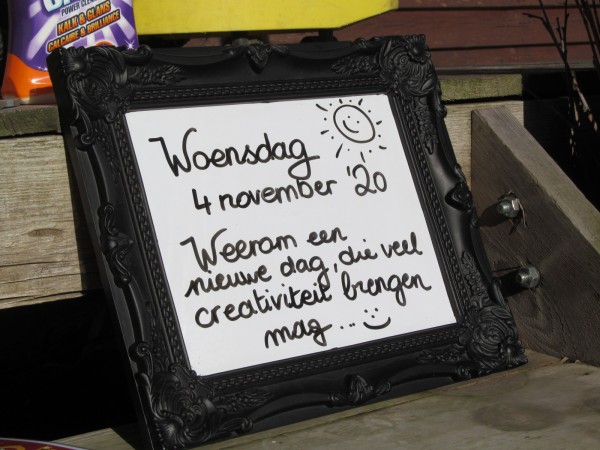 POWER CLEAN
KALK & GLANS
CALCAIRE & BRILLANCE
Woensdag
4 november '20
Weerom een
nieuwe dag, die veel
creativiteit brengen
mag...